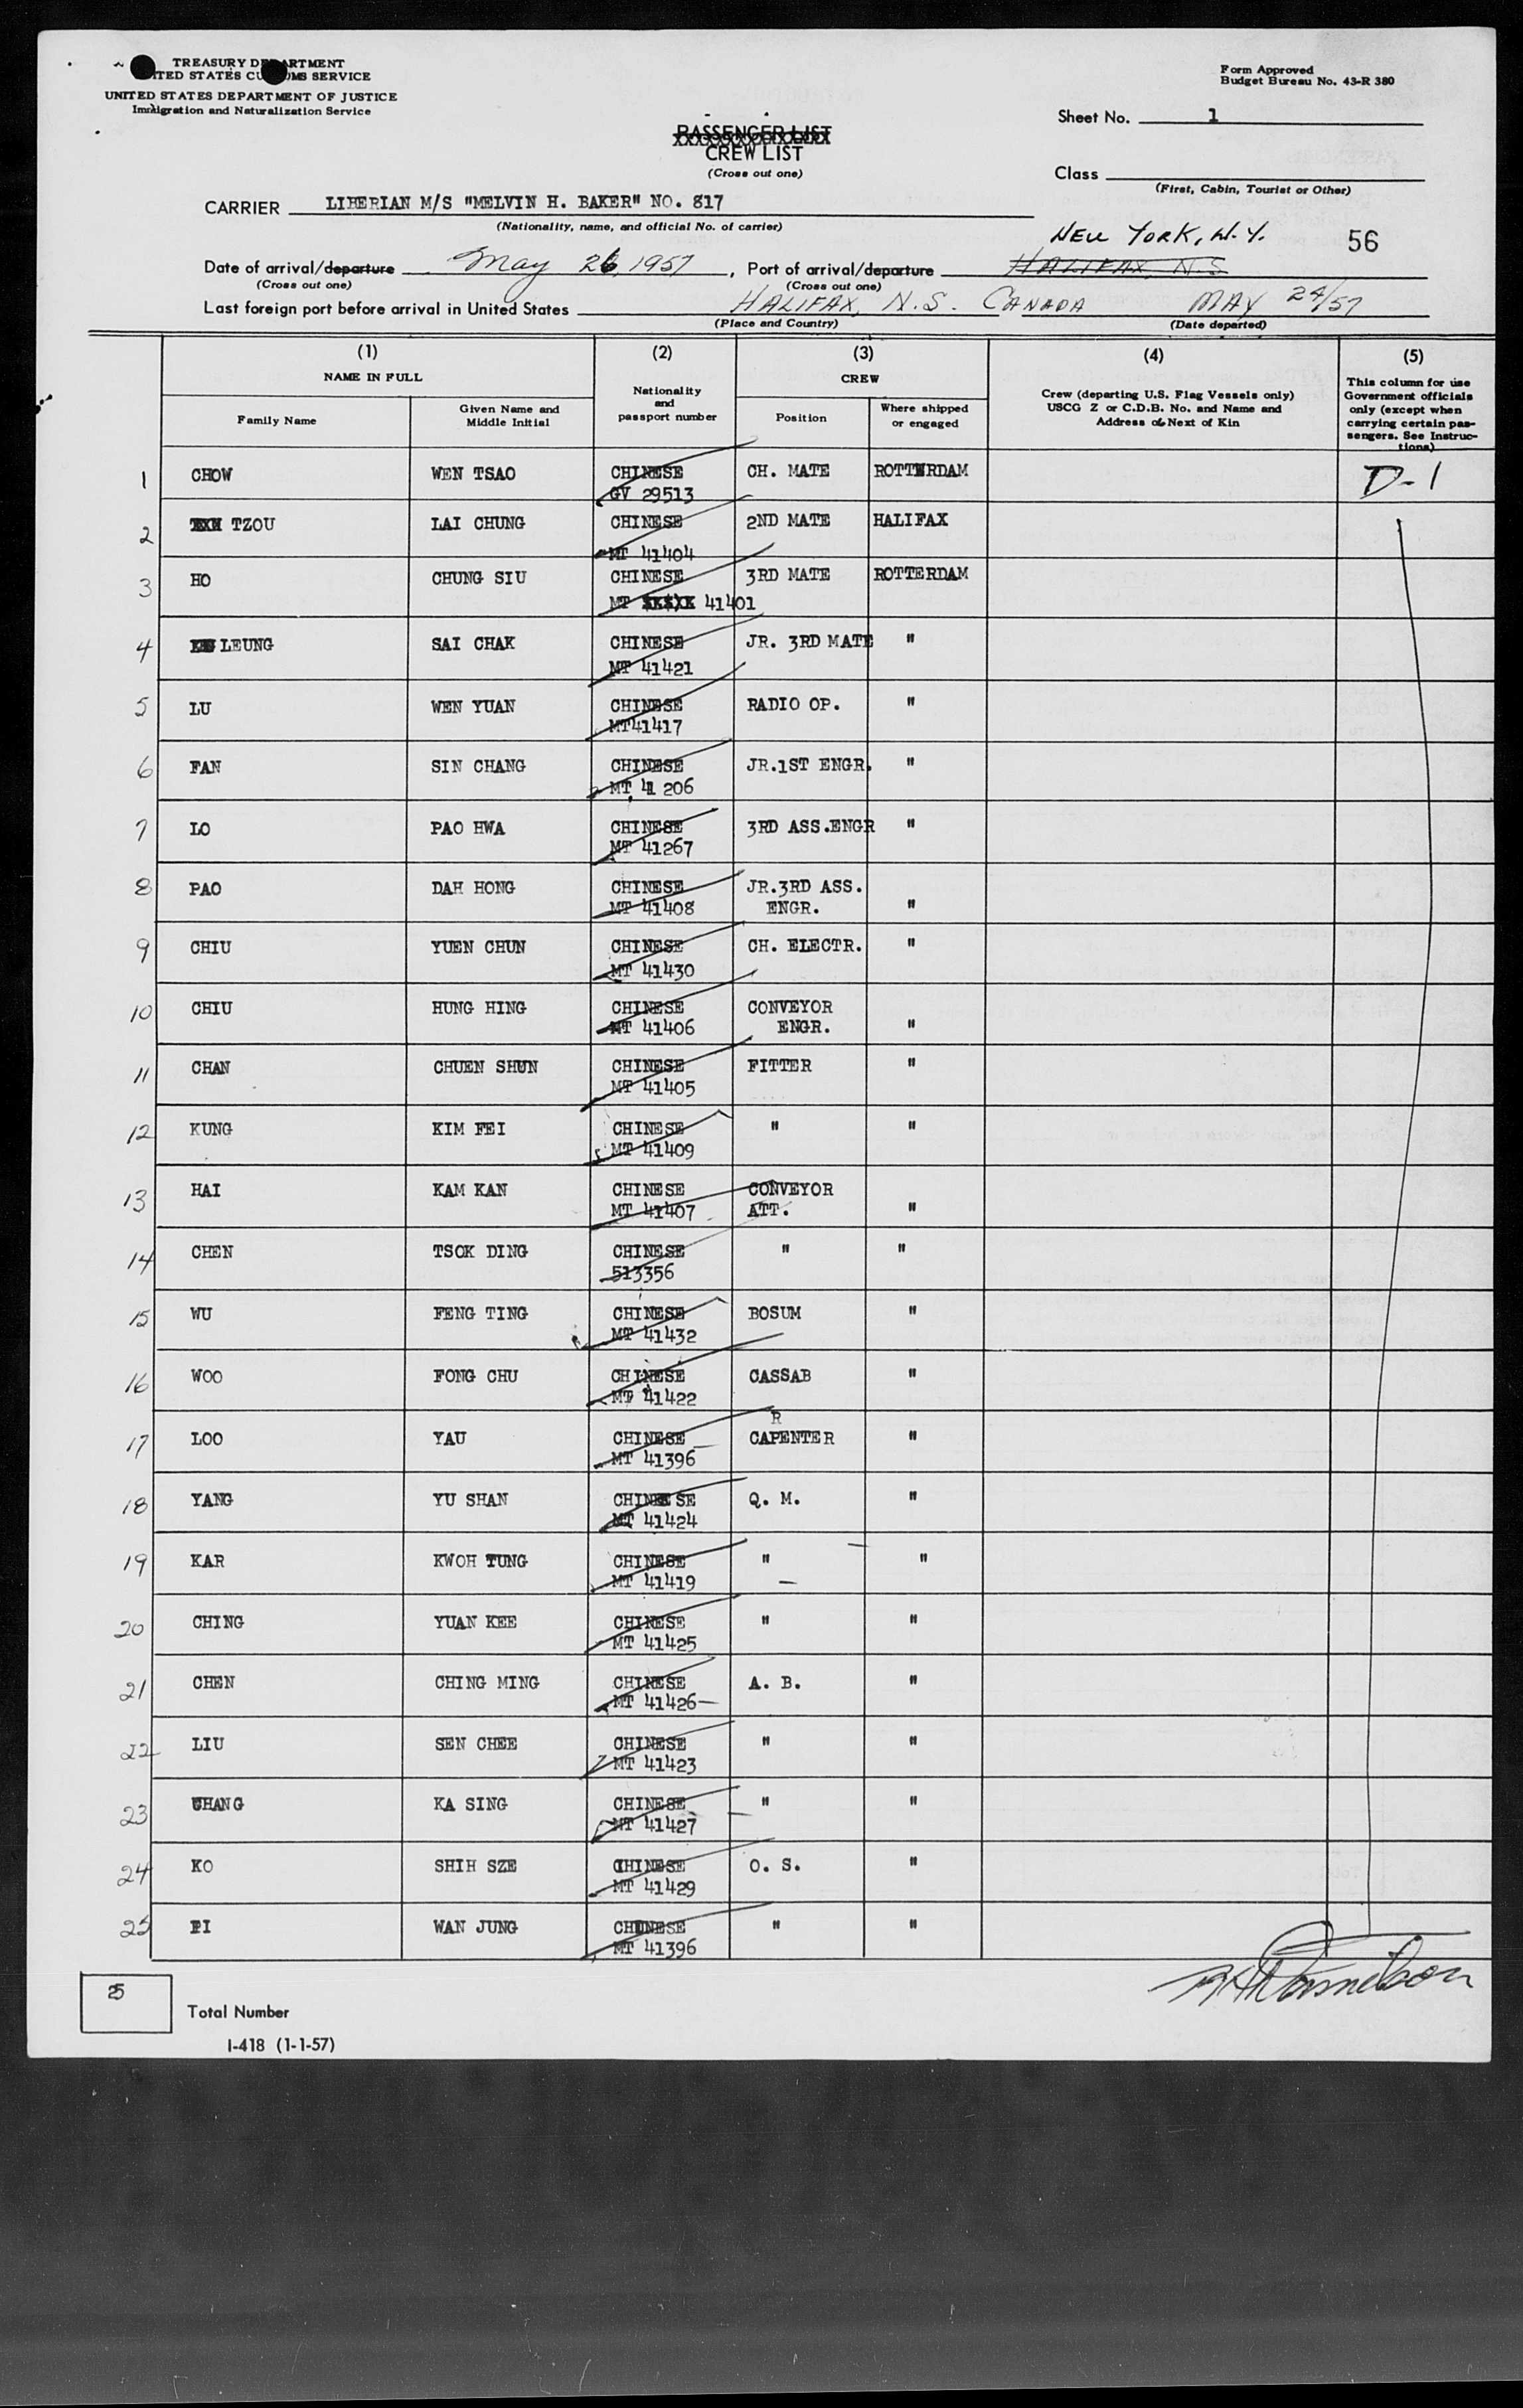 TREASURY DEPARTMENT
UNITED STATES CUSTOMS SERVICE
UNITED STATES DEPARTMENT OF JUSTICE
Immigration and Naturalization Service
Form Approved
Budget Bureau No. 43-R 380
Sheet No. 1
PASSENGER LIST
CREW LIST
(Cross out one)
Class
(First, Cabin, Tourist or Other)
CARRIER LIBERIAN M/S "MELVIN H. BAKER" NO. 817
(Nationality, name, and official No. of carrier)
NEW YORK, N.Y. 56
Date of arrival/departure May 26, 1957, Port of arrival/departure HALIFAX N.S
(Cross out one) (Cross out one)
Last foreign port before arrival in United States HALIFAX, N.S. CANADA MAY 24/57
(Place and Country) (Date departed)
(1) (2) (3) (4) (5)
NAME IN FULL
Family Name
Given Name and Middle Initial
Nationality and passport number
CREW
Position
Where shipped or engaged
Crew (departing U.S. Flag Vessels only)
USCG Z or C.D.B. No. and Name and
Address of Next of Kin
This column for use
Government officials
only (except when
carrying certain pas-
sengers. See Instruc-
tions)
1 CHOW WEN TSAO CHINESE CH. MATE ROTTERDAM D-1
GV 29513
2 TZOU LAI CHUNG CHINESE 2ND MATE HALIFAX
MT 41404
3 HO CHUNG SIU CHINESE 3RD MATE ROTTERDAM
MT 41401
4 LEUNG SAI CHAK CHINESE JR. 3RD MATE "
MT 41421
5 LU WEN YUAN CHINESE RADIO OP. "
MT41417
6 FAN SIN CHANG CHINESE JR.1ST ENGR. "
MT 41 206
7 LO PAO HWA CHINESE 3RD ASS.ENGR "
MT 41267
8 PAO DAH HONG CHINESE JR.3RD ASS.
MT 41408 ENGR. "
9 CHIU YUEN CHUN CHINESE CH. ELECTR. "
MT 41430
10 CHIU HUNG HING CHINESE CONVEYOR
MT 41406 ENGR. "
11 CHAN CHUEN SHUN CHINESE FITTER "
MT 41405
12 KUNG KIM FEI CHINESE " "
MT 41409
13 HAI KAM KAN CHINESE CONVEYOR
MT 41407 ATT. "
14 CHEN TSOK DING CHINESE " "
513356
15 WU FENG TING CHINESE BOSUM "
MT 41432
16 WOO FONG CHU CHINESE CASSAB "
MT 41422
R
17 LOO YAU CHINESE CAPENTER "
MT 41396
18 YANG YU SHAN CHINESE Q. M. "
MT 41424
19 KAR KWOH TUNG CHINESE " "
MT 41419
20 CHING YUAN KEE CHINESE " "
MT 41425
21 CHEN CHING MING CHINESE A. B. "
MT 41426
22 LIU SEN CHEE CHINESE " "
MT 41423
23 CHANG KA SING CHINESE " "
MT 41427
24 KO SHIH SZE CHINESE O. S. "
MT 41429
25 PI WAN JUNG CHINESE " "
MT 41396
25
Total Number
I-418 (1-1-57)